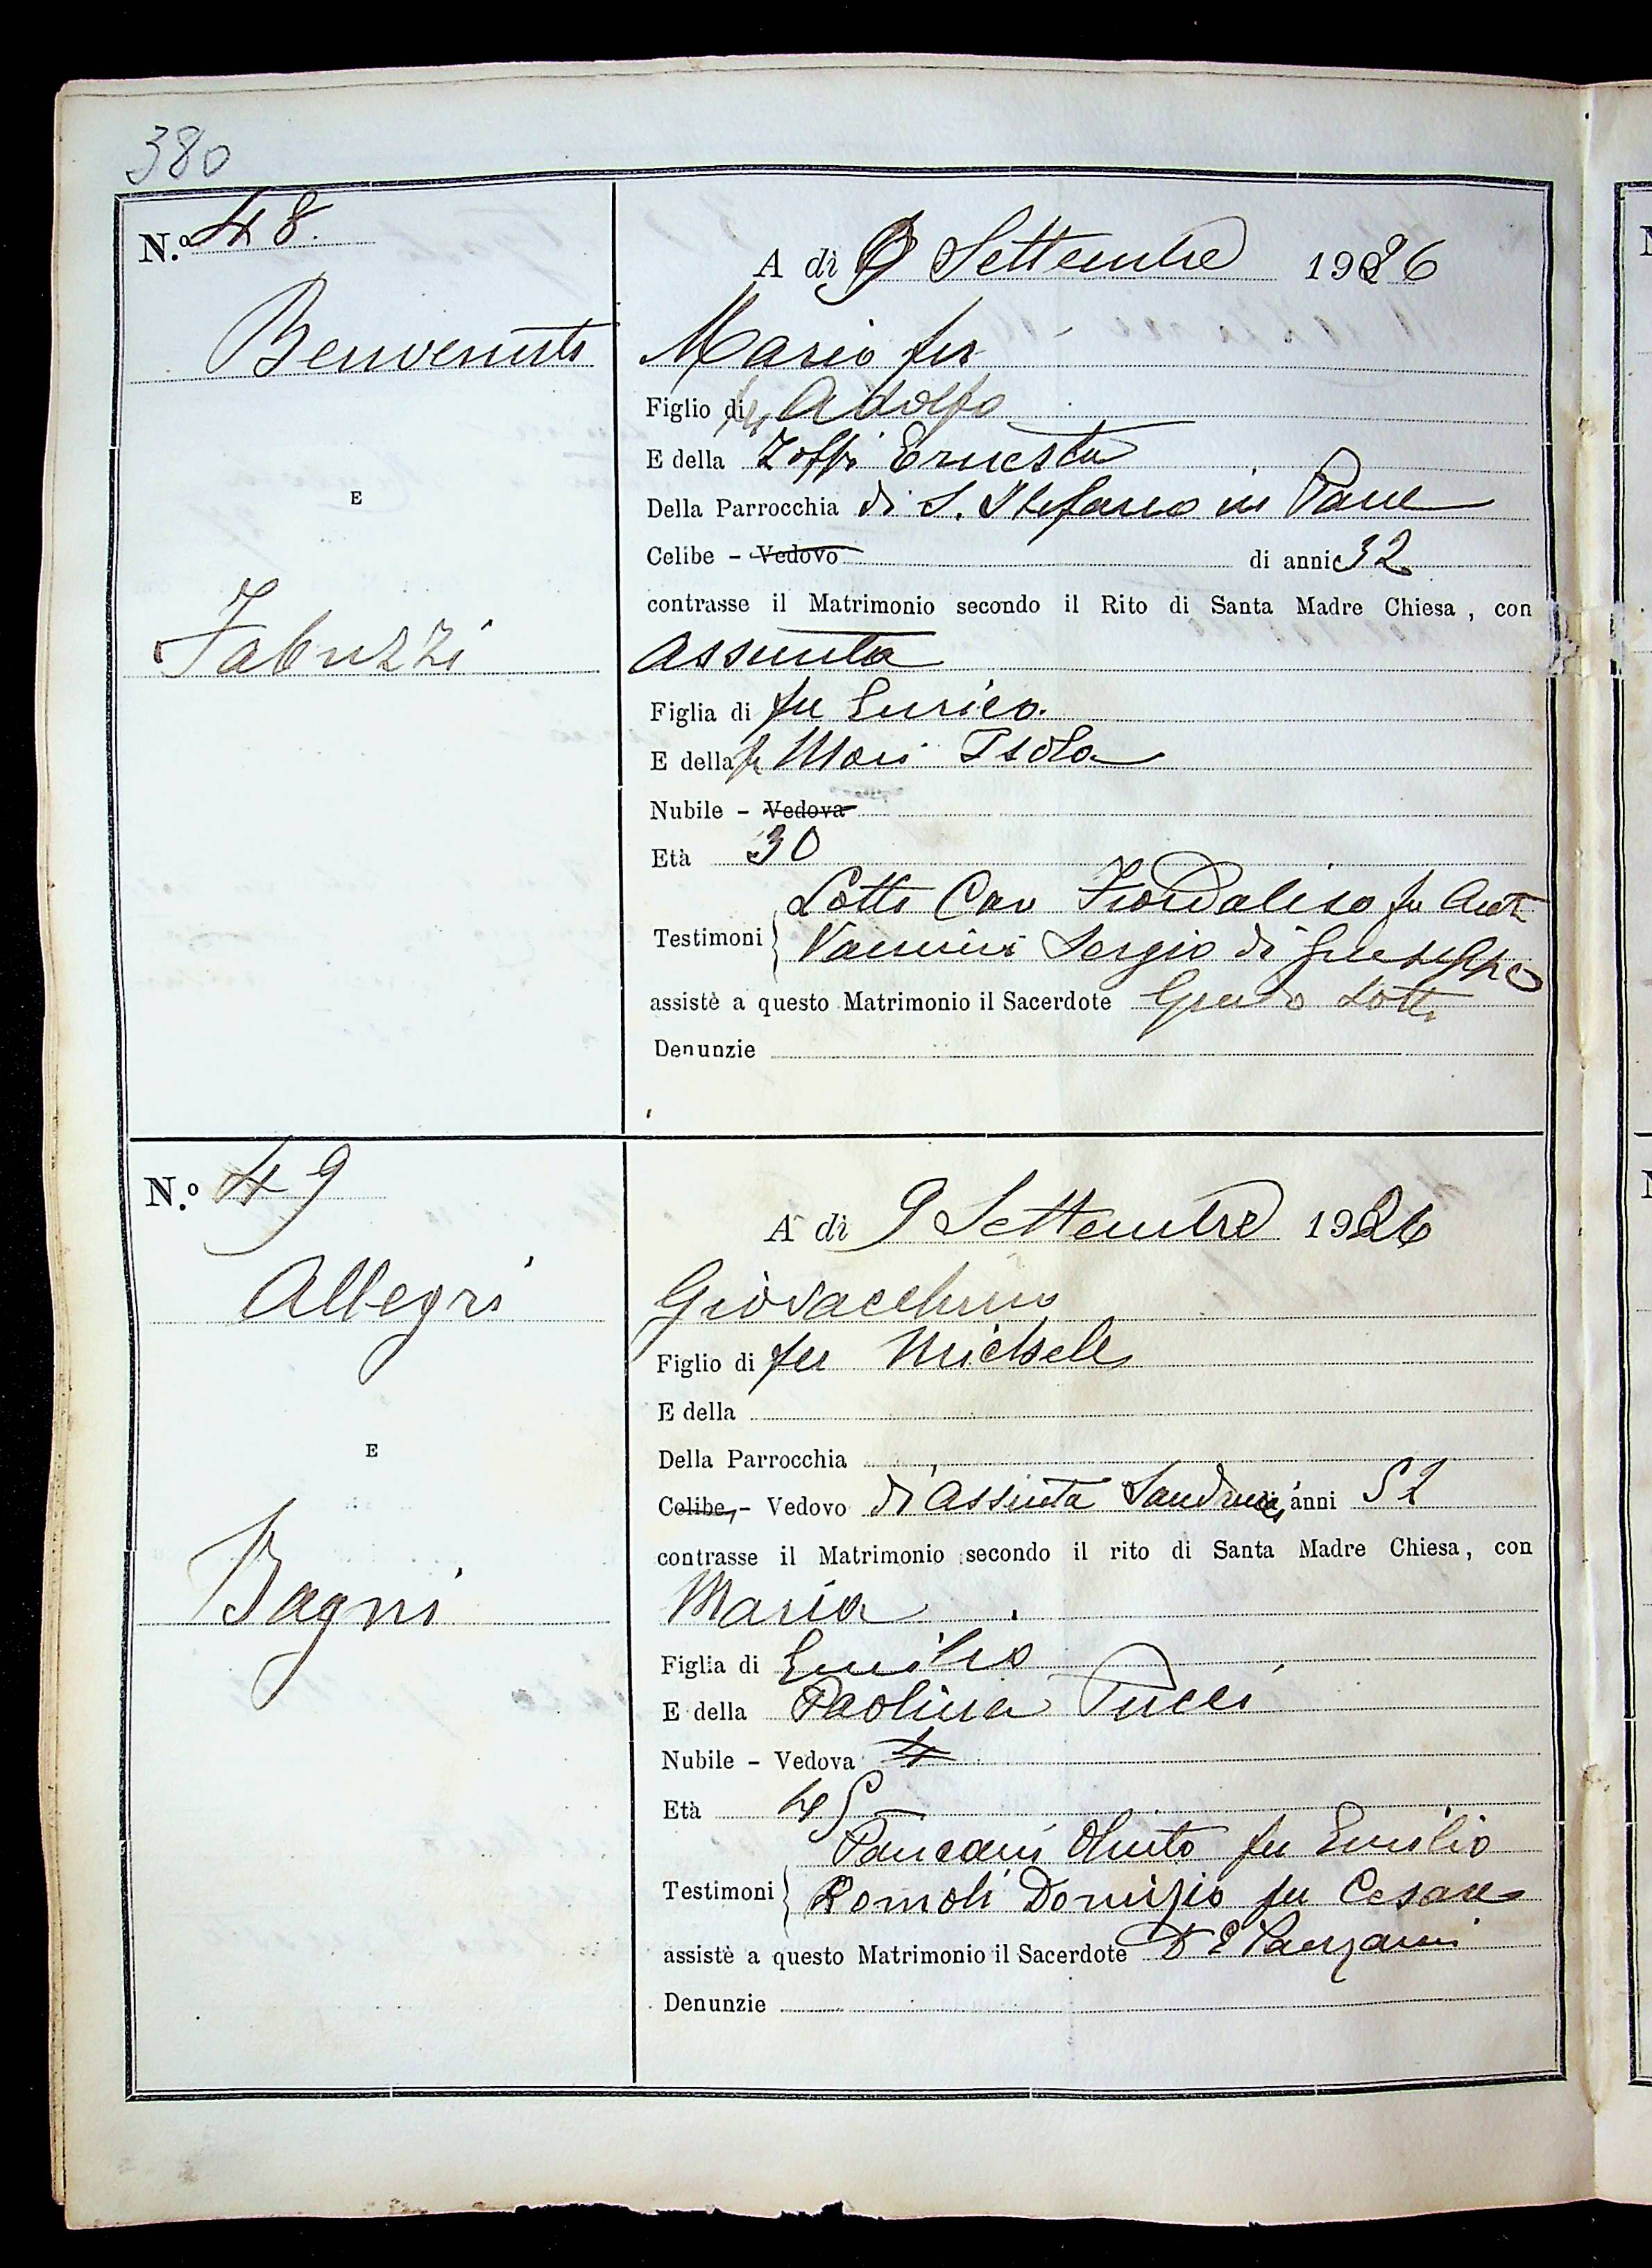 380
N.o 48.
A dì 9 Settembre 1926
Benvenuti
Mario fu
Figlio di fu Adolfo
E della Zoffi Ernesta
Della Parrocchia di S. Stefano in Pane
E
Celibe - Vedovo di anni 32
contrasse il Matrimonio secondo il Rito di Santa Madre Chiesa, con
Fabuzzi
Assunta
Figlia di fu Enrico.
E della fu Mori Isola
Nubile - Vedova
Età 30
Lotti Cav Fiordaliso fu Ant
Testimoni
Vannini Sergio di Giuseppe
assistè a questo Matrimonio il Sacerdote Guido Lotti
Denunzie
N.o 49
A dì 9 Settembre 1926
Allegri
Giovacchino
Figlio di fu Michele
E della
E
Della Parrocchia
Celibe, - Vedovo di Assunta anni 52
contrasse il Matrimonio secondo il rito di Santa Madre Chiesa, con
Bagni
Maria
Figlia di Emilio
E della Paolina Pucci
Nubile - Vedova
Età 45
Pancani Olinto fu Emilio
Testimoni
Romoli Domizio fu Cesare
assistè a questo Matrimonio il Sacerdote D E Panzani
Denunzie